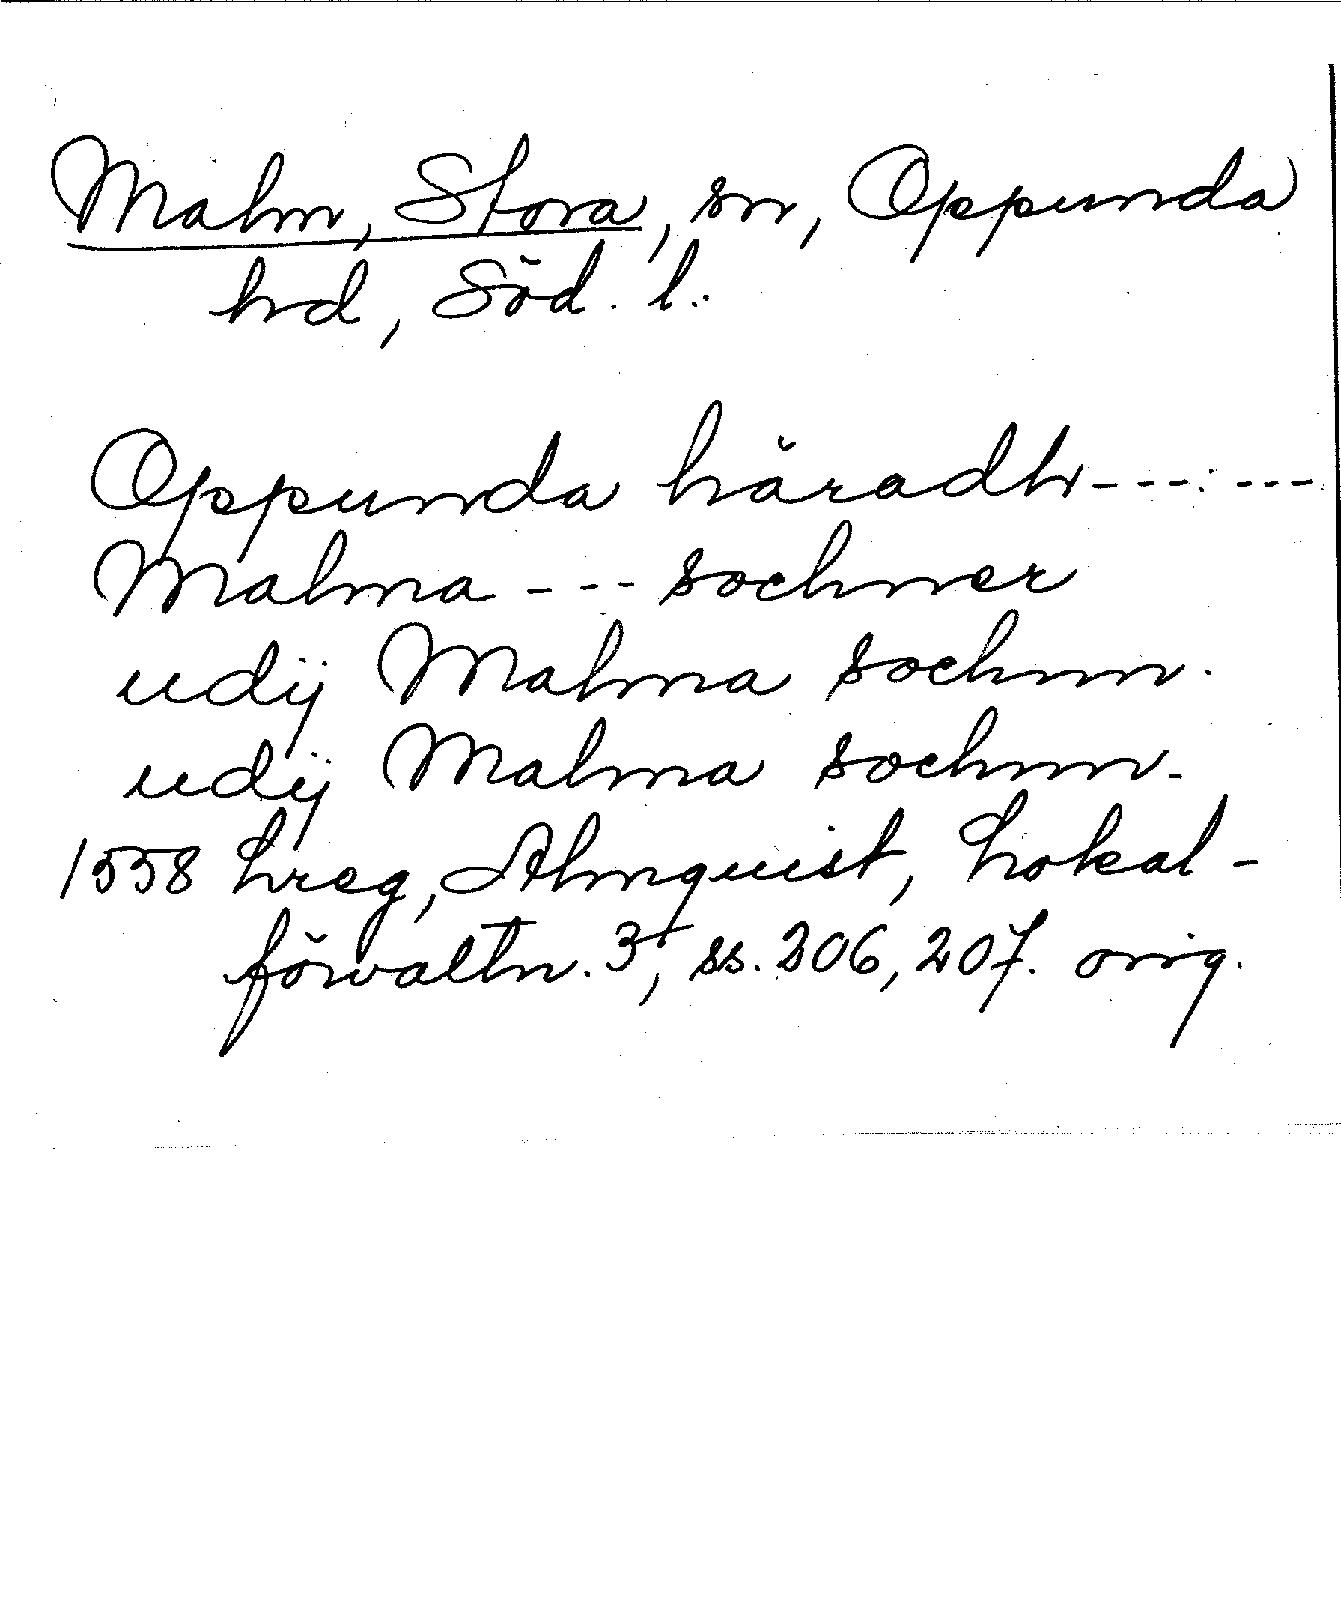 Malm, Stora, sn, Oppunda
hd, Söd. l.
Oppunda häradh --- ---
Malma --- sochner
udij Malma sochnn.
udij Malma sochnn.
1558 hreg, Almquist, Lokal-
förvaltn. 3, ss. 206, 207. orig.